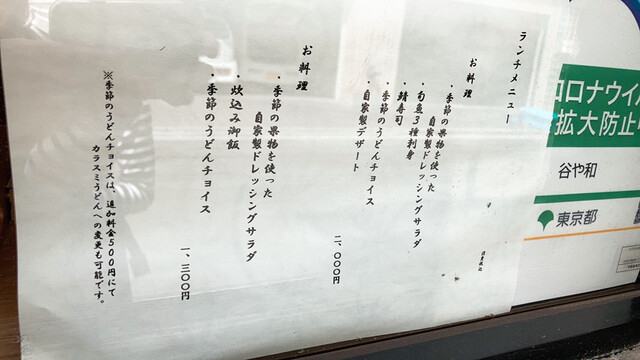 ランチメニュー
お料理
・季節の果物を使った
自家製ドレッシングサラダ
・旬魚3種利身
・鯖寿司
・季節のうどんチョイス
・自家製デザート
二、〇〇〇円
お料理
・季節の果物を使った
自家製ドレッシングサラダ
・炊込み御飯
・季節のうどんチョイス
一、三〇〇円
※季節のうどんチョイスは、追加料金500円にて
カラスミうどんへの変更も可能です。
コロナウイ
拡大防止
谷や和
東京都